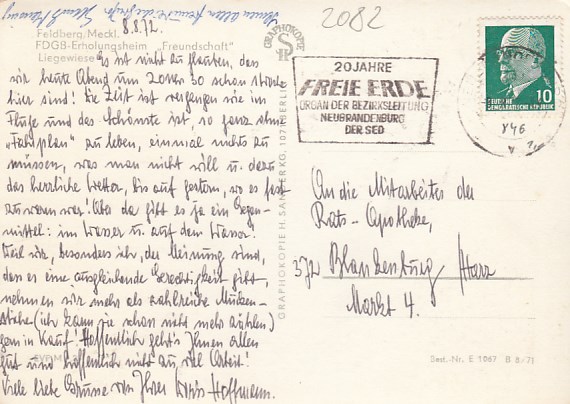 2082
8.8.72.
Feldberg/Meckl.
FDGB-Erholungsheim „Freundschaft"
Liegewiese
Es ist nicht zu glauben, das
wir heute Abend um 20 Uhr schon
hier sind! Die Zeit ist vergangen wie im
Fluge und das Schönste ist, so ganz ohne
„Fahrplan" zu leben, einmal nichts zu
müssen, was man nicht will u. dazu
das herrliche Wetter, bis auf gestern, wo es fast
zu warm war! Aber da gibt es ja ein Gegen-
mittel: im Wasser u. auf dem Wasser!
Weil wir, besonders ich, der Meinung sind,
das es eine ausgleichende Gerechtigkeit gibt,
nehmen wir mehr als zahlreiche Mücken-
stiche (ich kann sie schon nicht mehr zählen)
gern in Kauf! Hoffentlich geht's Ihnen allen
gut und hoffentlich nicht zu viel Arbeit!
Viele liebe Grüsse von Ihrer Hoffmann.
GRAPHOKOPIE
H
S
GRAPHOKOPIE H. SANDER KG, 1071 BERLIN
20 JAHRE
FREIE ERDE
ORGAN DER BEZIRKSLEITUNG
NEUBRANDENBURG
DER SED
10
DEUTSCHE
DEMOKRATISCHE REPUBLIK
An die Mitarbeiter der
Rats-Apotheke,
372 Blankenburg/Harz
Markt 4.
Best.-Nr. E 1067 B 8/71